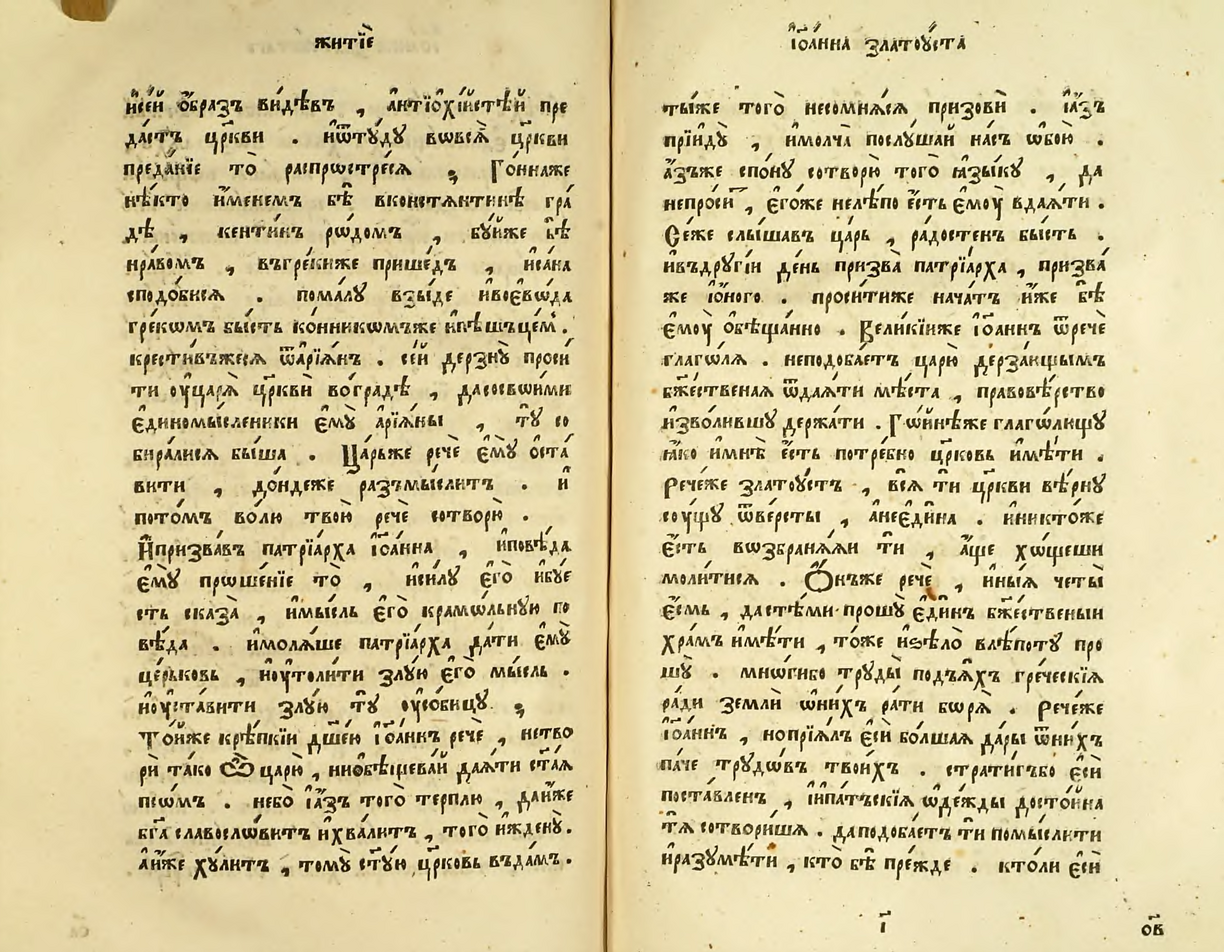 житїе
исей ѻбразъ видѣвъ , антїохїистѣй пре
дастъ цркви . иѿтуду вѡвсѧ цркви
преданїе то распрѡстресѧ , Гоинаже
нѣкто именемъ бѣ вконстѧнтинѣ гра
дѣ , кентинъ рѡдомъ , буиже бѣ
нравомъ , въгрекиже пришедъ , исана
сподобисѧ . помалꙋ взыде ивоевѡда
грекѡмъ бысть конникѡмъже ипѣшъцем .
крестивъжесѧ ѿарїѧнъ . сей дерзнꙋ проси
ти оуцарѧ цркви воградѣ , дасосвоими
единомысленики емꙋ арїѧны , тꙋ со
биралисѧ быша . Царьже рече емꙋ оста
вити , дондеже разъмыслитъ . и
потомъ волю твою рече сотворю .
Ипризвавъ патрїарха їоанна , иповѣда
емꙋ прѡшенїе то , исилꙋ его ибуе
сть сказа , имысль его крамѡльнꙋю по
вѣда . имолѧше патрїарха дати емꙋ
церьковь , иоутолити злꙋю его мысль .
иоуставити злꙋю тꙋ оусобицꙋ .
Тойже крѣпкїи дшею їоаннъ рече , нетво
ри тако ѽ царю , ниобѣщевай даѧти стаѧ
псѡмъ . небо їазъ того терплю , даиже
бга славослѡвитъ ихвалитъ , того иждену .
аиже хꙋлитъ , томꙋ стꙋю црковь въдамъ .
їоанна златоꙋста
тыже того несомнѧсѧ призови . їазъ
прїидꙋ , имолча послꙋшай насъ ѡбою .
азъже спонꙋ сотворю того ꙗзыкꙋ , да
непроси , егоже нелѣпо есть емоу вдаѧти .
Сеже слышавъ царь , радостенъ бысть .
ивъдрꙋгїи день призва патрїарха , призва
же їоного . проситиже начатъ иже бѣ
емоу обѣщанно . Великїиже їоаннъ ѿрече
глаголѧ . неподобаетъ царю дерзающымъ
бжественаѧ ѿдаѧти мѣста , правовѣрство
изволившꙋ держати . Гѡинѣже глаголющꙋ
ꙗко имнѣ есть потребно црковь имѣти .
Речеже златоꙋстъ , всѧ ти цркви вѣрнꙋ
соущꙋ ѿверсты , анеедина . иниктоже
есть вѡзбранѧѧи ти , аще хощеши
молитисѧ . Ѻнъже рече , иныѧ четы
есмь , дастѣми прошꙋ единъ бжественыи
храмъ имѣти , тоже иѕѣло влѣпотꙋ про
шꙋ . мнѡгибо трꙋды подъѧхъ греческїѧ
ради земли ѡнихъ рати борѧ . Речеже
їоаннъ , нопрїѧлъ еси болшаѧ дары ѿнихъ
паче трꙋдѡвъ твоихъ . стратигъбо еси
поставленъ , їипатъскїѧ ѡдежды достоина
тѧ сотворишѧ . даподобаетъ ти помыслити
иразꙋмѣти , кто бѣ прежде . ктоли еси
ї
ов